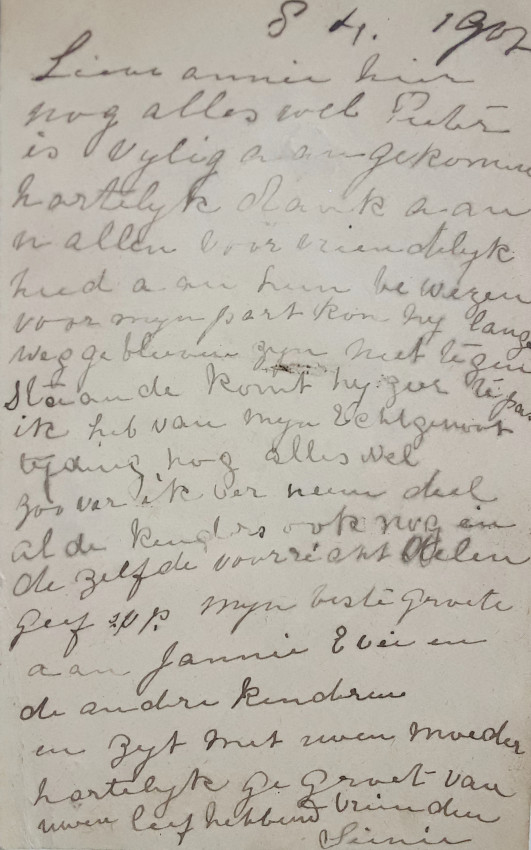 8 4. 1902
Lieve annie hier
nog alles wel Pieter
is vylig aangekomen
hartelyk dank aan
u allen voor vriendelyk
hied aan hem bewezen
voor myn part kon hy lange
weg gebleven zyn niet tegen
staande komt hy zeer te pas
ik heb van myn Echtgenoot
tyding nog alles wel
zoo ver ik ver neem deel
al de kinders ook nog in
de zelfde voorrecht delen
geef s.v.p. myn beste groete
aan Jannie Evie en
de andre kinderen
en zyt met uwen moeder
hartelyk gegroet van
uwen leefhebbend vrienden